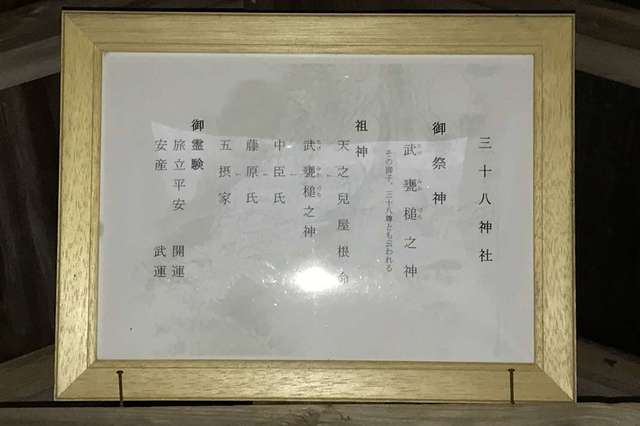 三十八神社
御祭神
武甕槌之神
その御子、三十八尊とも云われる
祖神
天之兒屋根命
武甕槌之神
中臣氏
藤原氏
五摂家
御霊験
旅立平安 開運
安産 武運